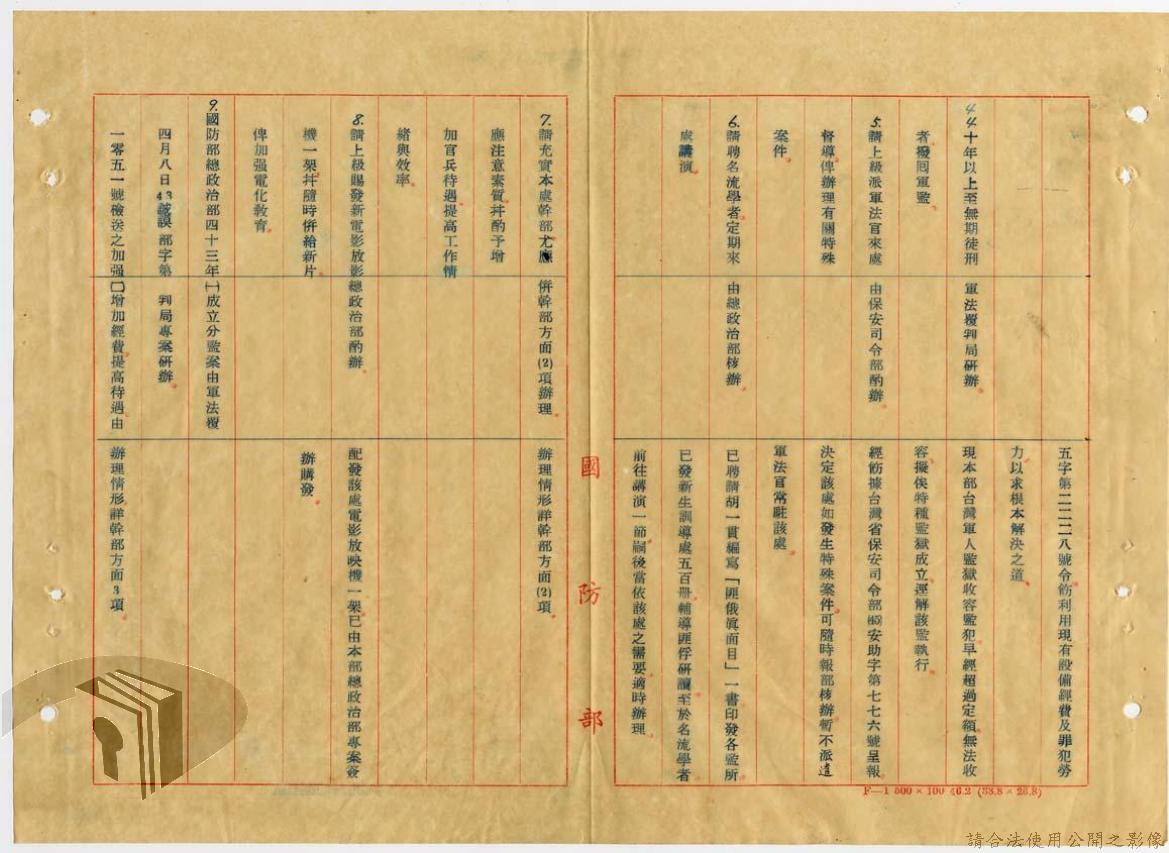 五字第二二二八號令飭利用現有設備經費及罪犯勞
力以求根本解決之道
4.十年以上至無期徒刑
軍法覆判局研辦。
現本部台灣軍人監獄收容監犯早經超過定額無法收
者撥囘軍監。
容擬俟特種監獄成立逕解該監執行。
5.請上級派軍法官來處
由保安司令部酌辦。
經飭據台灣省保安司令部(45)安助字第七七六號呈報
督導俾辦理有關特殊
決定該處如發生特殊案件可隨時報部核辦暫不派遣
案件。
軍法官常駐該處。
6.請聘名流學者定期來
由總政治部核辦。
已聘請胡一貫編寫「匪俄眞面目」一書印發各監所
處講演。
已發新生訓導處五百册輔導匪俘研讀至於名流學者
前往講演一節嗣後當依該處之需要適時辦理。
國防部
F—1 500×100 46.2 (38.8×26.8)
7.請充實本處幹部尤應
併幹部方面(2)項辦理。
辦理情形詳幹部方面(2)項。
應注意素質幷酌予增
加官兵待遇提高工作情
緒與效率。
8.請上級賜發新電影放影
總政治部酌辦。
配發該處電影放映機一架已由本部總政治部專案簽
機一架幷隨時併給新片
辦購發。
俾加强電化敎育。
9.國防部總政治部四十三年
㈠成立分監案由軍法覆
四月八日43 部字第
判局專案研辦。
一零五一號檢送之加强
㈡增加經費提高待遇由
辦理情形詳幹部方面3項。
請合法使用公開之影像